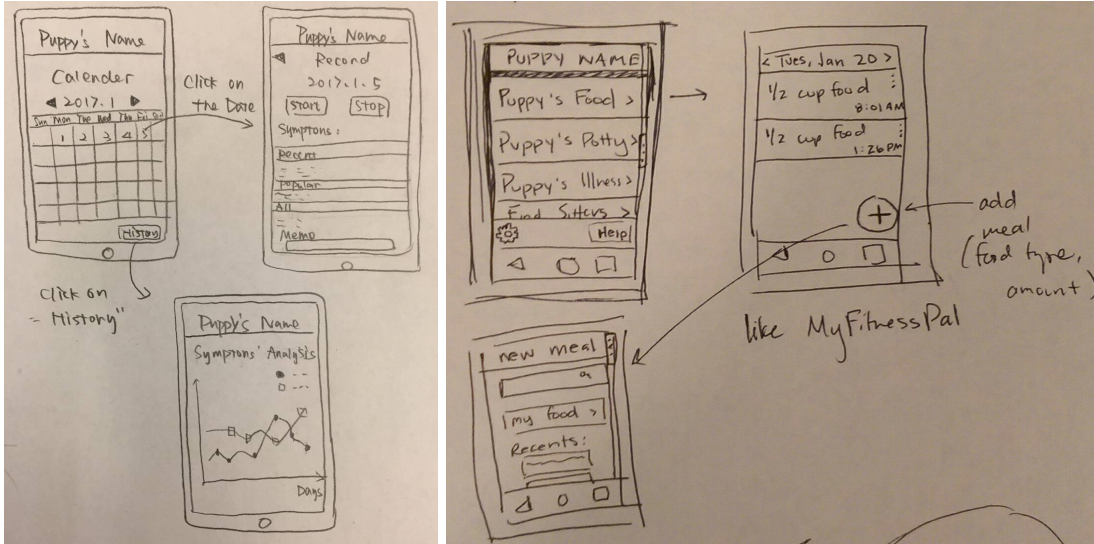 Puppy's Name
Calender
◀ 2017.1 ▶
Sun Mon Tue Wed Thu Fri Sat
1 2 3 4 5
History
Click on
the Date
Puppy's Name
◀ Record
2017.1.5
Start Stop
Symptoms:
Recent
Popular
All
Memo
Click on
"History"
Puppy's Name
Symptons' Analysis
Days
PUPPY NAME
Puppy's Food >
Puppy's Potty >
Puppy's Illness >
Find Sitters >
Help
< Tues, Jan 20 >
1/2 cup food
8:01 AM
1/2 cup food
1:26 PM
+
add
meal
(food type,
amount)
like MyFitnessPal
new meal
my food >
Recents: